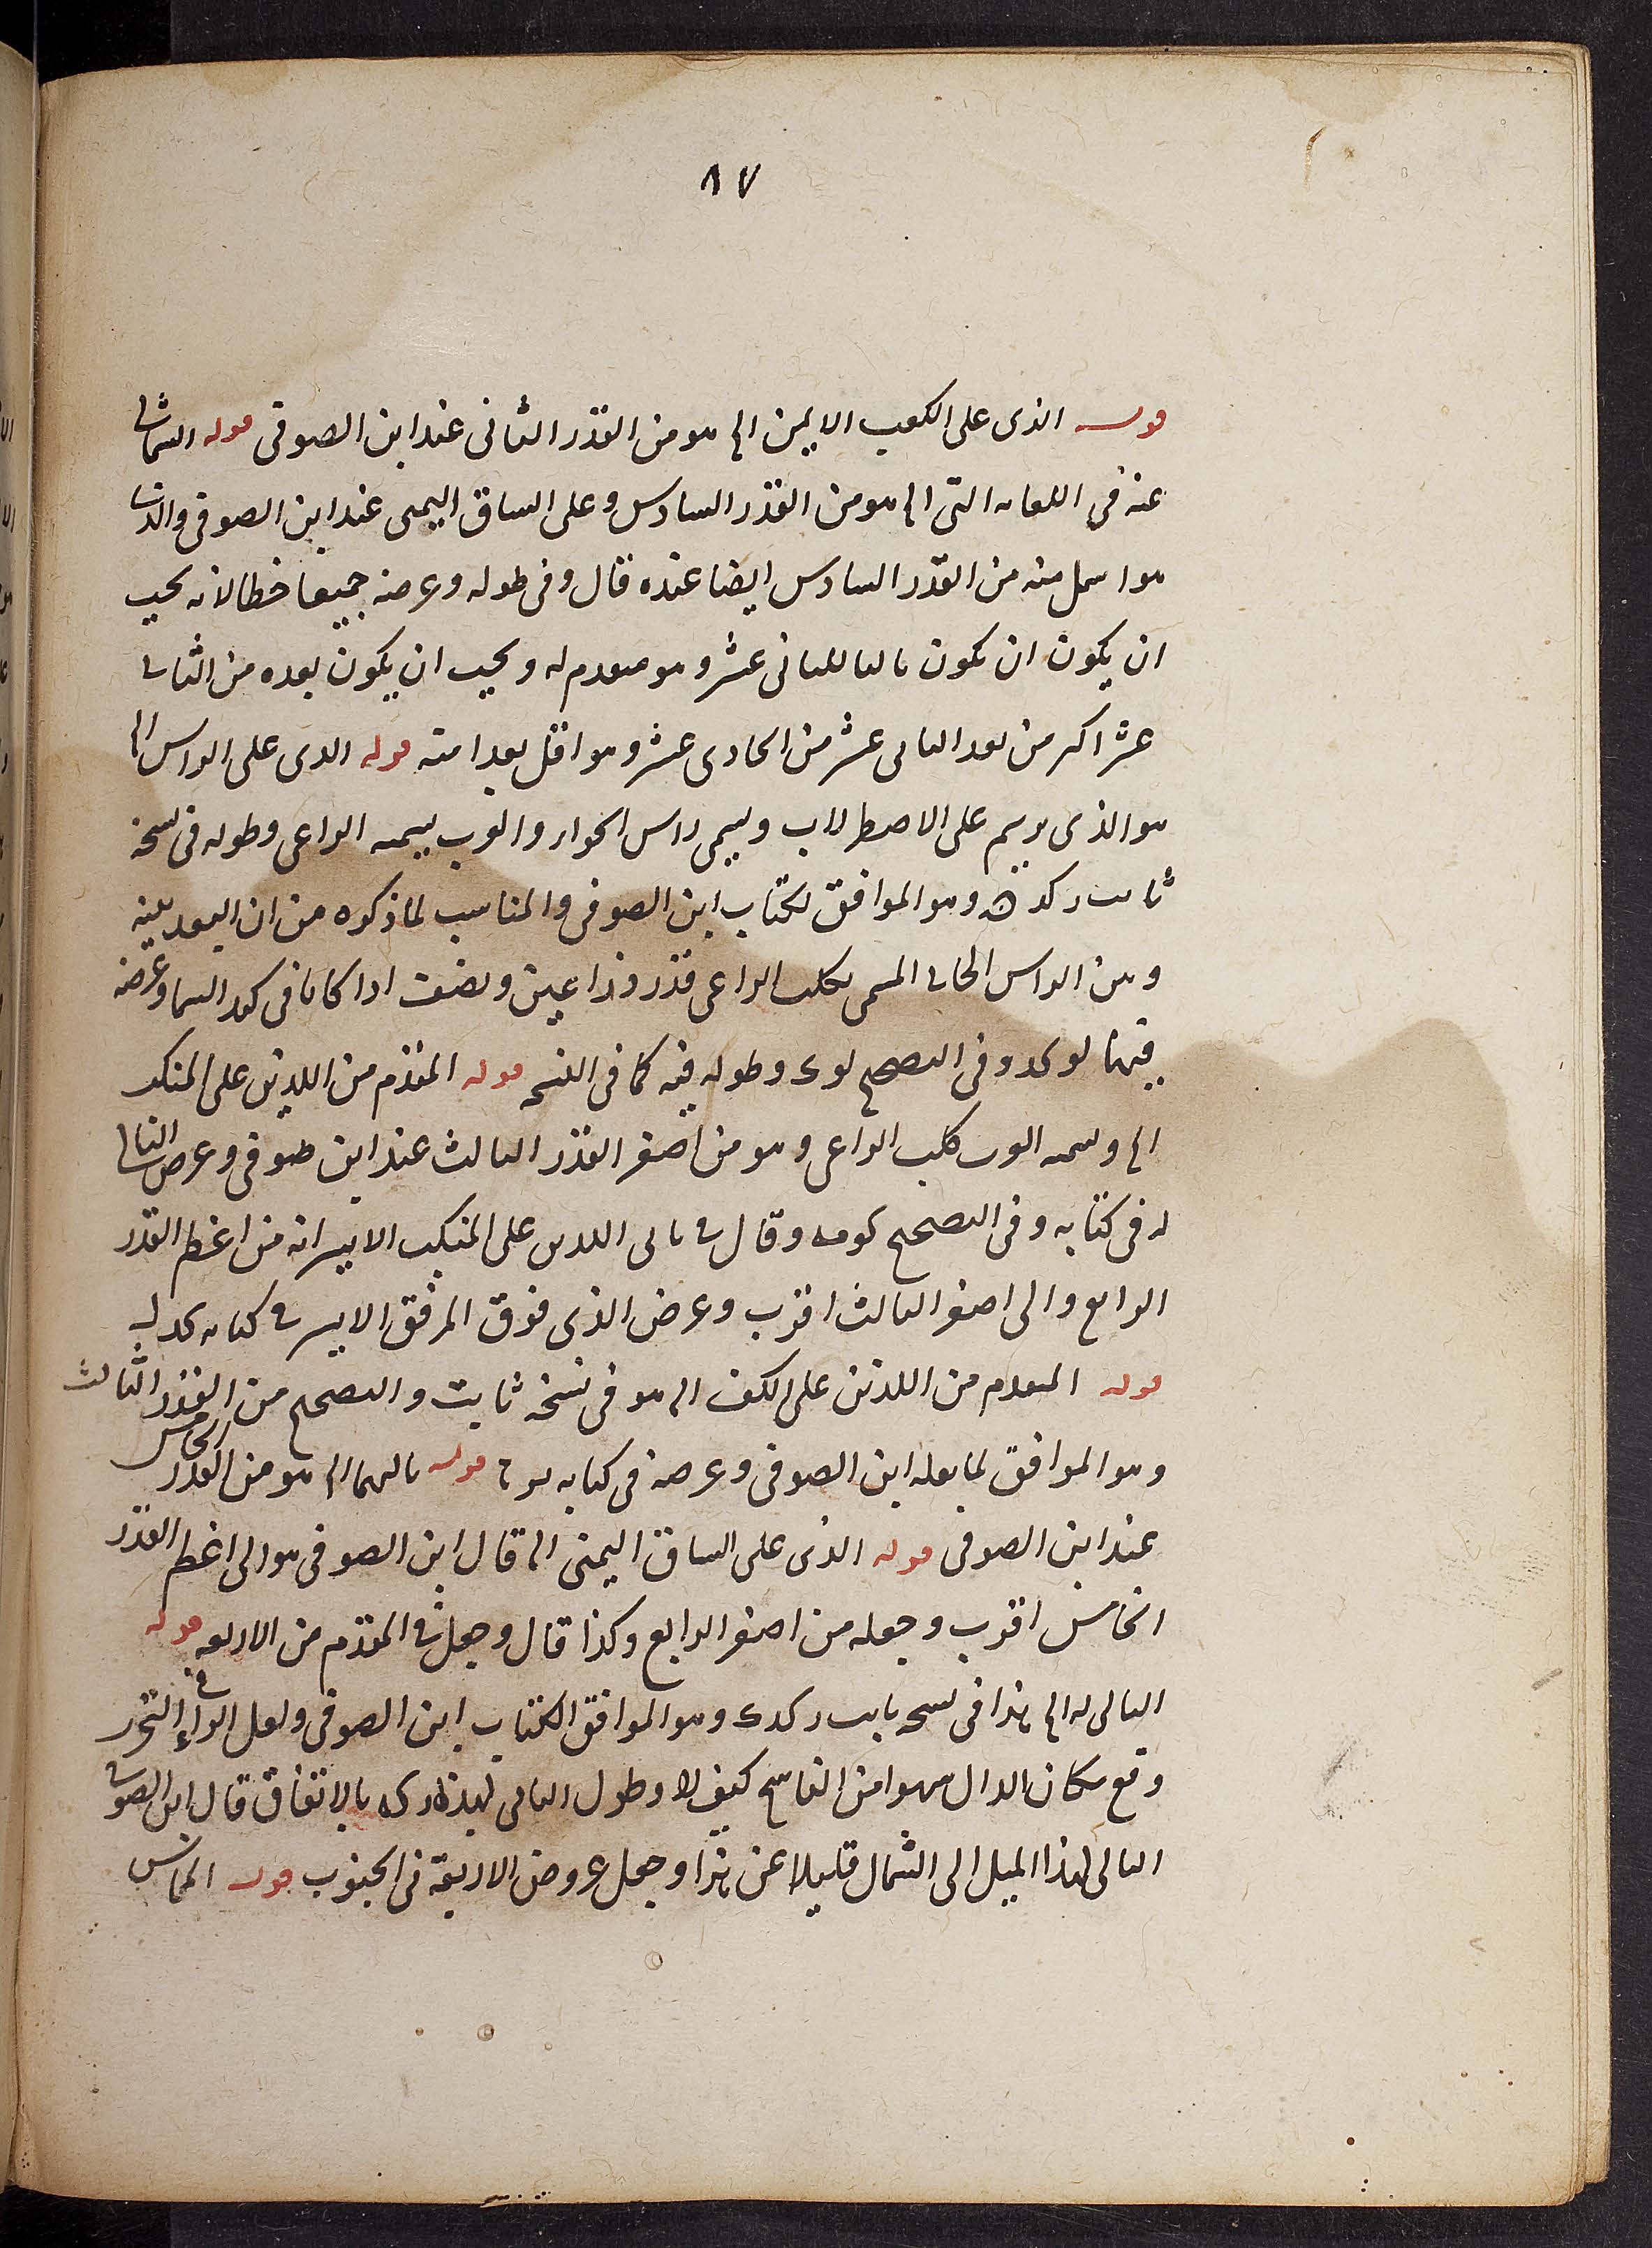 ٨٧
قوله الذى على الكعب الايمن الخ هو من القدر الثانى عند ابن الصوفى قوله الشمالى
عنه فى اللفافه التى الخ هو من القدر السادس وعلى الساق اليمنى عند ابن الصوفى والذى
هو اسفل منه من القدر السادس ايضا عنده قال وفى طوله وعرضه جميعا خطا لانه يجب
ان يكون ان يكون تاليا للثانى عشر وهو متقدم له ويجب ان يكون بعده من الثانى
عشر اكثر من بعد الثانى عشر من الحادى عشر وهو اقل بعدا منه قوله الذى على الراس الخ
هو الذى يرسم على الاصطرلاب ويسمى راس الحواء والعرب يسميه الراعى وطوله فى نسخة
ثابت ركد وهو الموافق لكتاب ابن الصوفى والمناسب لما ذكره من ان البعد بينه
وبين الراس الجاثى المسمى بكلب الراعى قدر ذراعين ونصف اذا كانا فى كبد السما وعرضه
فيهما لو كد وفى التصحيح لو ى وطوله فيه كما فى النسخ قوله المتقدم من اللذين على المنكب
الخ ويسميه العرب كلب الراعى وهو من اصغر القدر الثالث عند ابن صوفى وعرض التالى
له فى كتابه وفى التصحيح كو مه وقال فى ثانى اللذين على المنكب الايسر انه من اعظم القدر
الرابع والى اصغر الثالث اقرب وعرض الذى فوق المرفق الايسر فى كتابه كد ل
قوله المتقدم من اللذين على الكف الخ هو فى نسخة ثابت والتصحيح من القدر الثالث
وهو الموافق لما نقله ابن الصوفى وعرضه فى كتابه قوله تاليهما الخ هو من القدر الخامس
عند ابن الصوفى قوله الذى على الساق اليمنى الخ قال ابن الصوفى هو الى اعظم القدر
الخامس اقرب وجعله من اصغر الرابع وكذا قال وجعل فى المتقدم من الاربعه قوله
التالى له الخ هذا فى نسخة ثابت ركد ى وهو الموافق الكتاب ابن الصوفى ولعل الراء فى التحرير
وقع مكان الدال سهوا من الناسخ كيف لا وطول التالى لهذا ركه بالاتفاق قال ابن الصوفى
التالى لهذا الميل الى الشمال قليلا عن هذا وجعل عروض الاربعة فى الجنوب قوله المماس